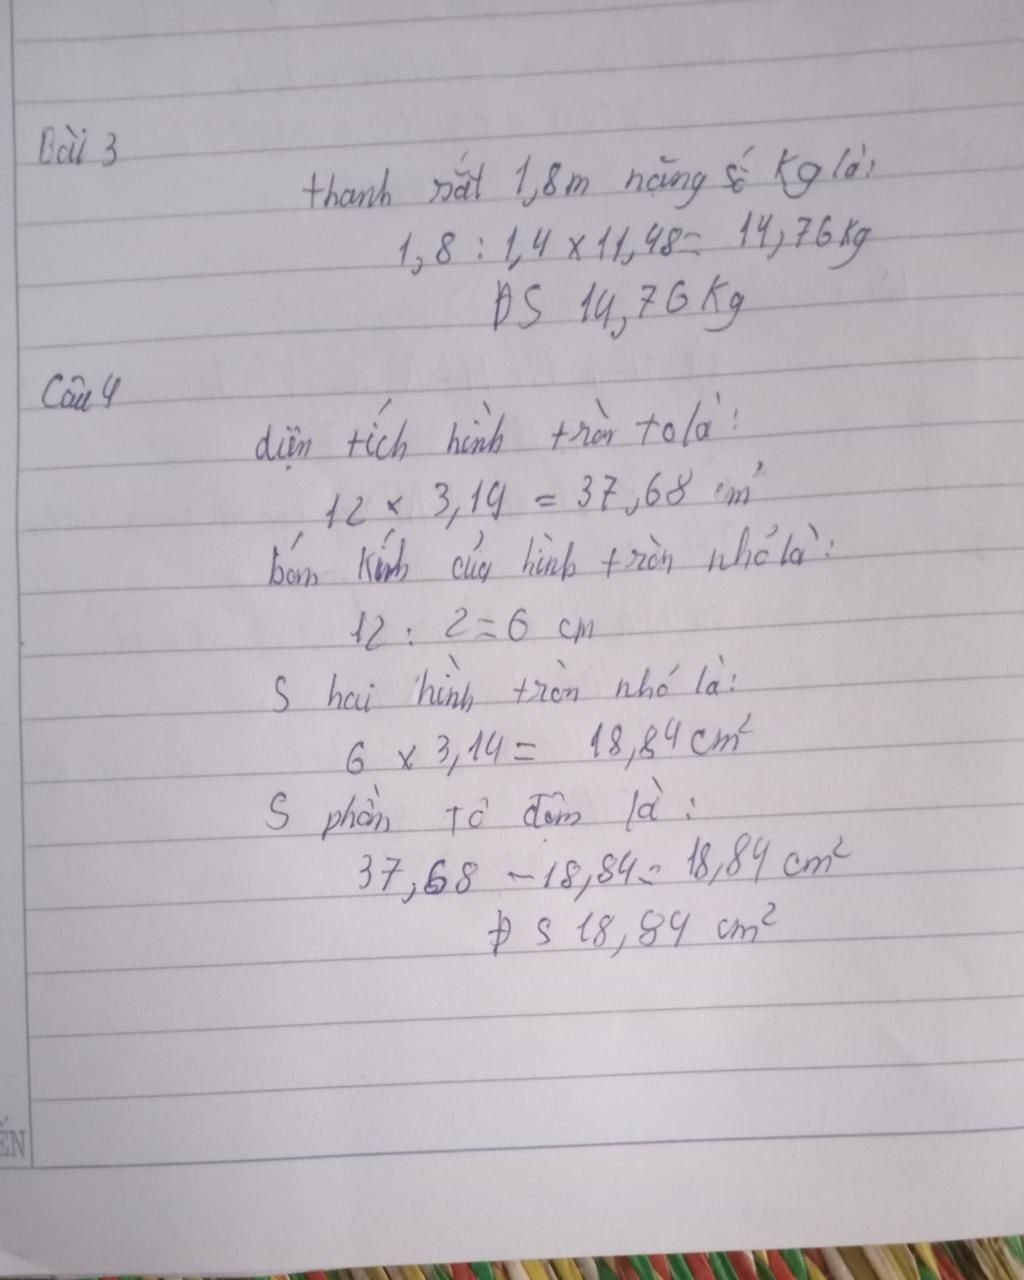 Bài 3
thanh sắt 1,8m nặng số Kg là:
1,8 : 1,4 x 11,48 = 14,76 Kg
ĐS 14,76 Kg
Câu 4
diện tích hình tròn to là:
12 x 3,14 = 37,68 cm²
bán Kính của hình tròn nhỏ là:
12 : 2 = 6 cm
S hai hình tròn nhỏ là:
6 x 3,14 = 18,84 cm²
S phần Tô đậm là:
37,68 - 18,84 = 18,84 cm²
ĐS 18,84 cm²
ẾN